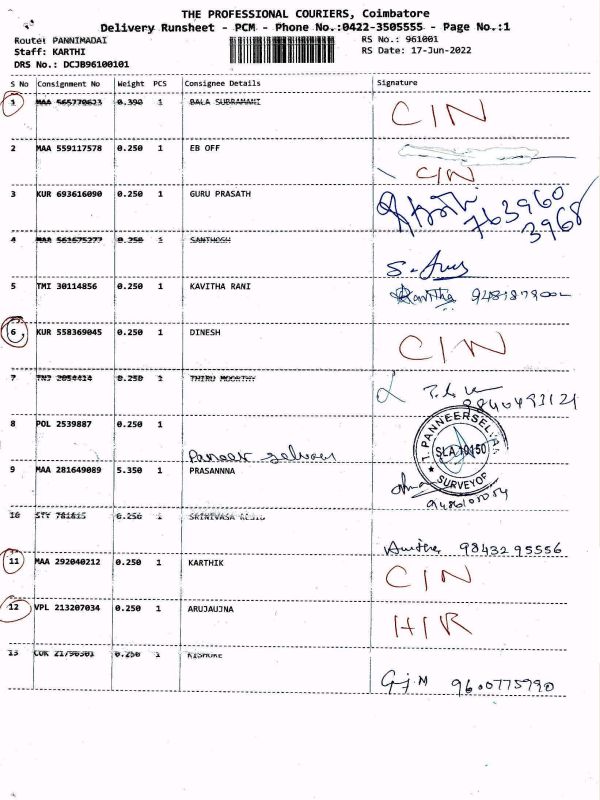 THE PROFESSIONAL COURIERS, Coimbatore
Delivery Runsheet - PCM - Phone No.:0422-3505555 - Page No.:1
Route: PANNIMADAI
RS No.: 961001
Staff: KARTHI
RS Date: 17-Jun-2022
DRS No.: DCJB96100101
S No Consignment No Weight PCS Consignee Details Signature
1 MAA 565770623 0.390 1 BALA SUBRAMANI CIN
2 MAA 559117578 0.250 1 EB OFF CIN
3 KUR 693616090 0.250 1 GURU PRASATH
763960
3968
4 MAA 561675277 0.250 1 SANTHOSH
5 TMI 30114856 0.250 1 KAVITHA RANI Kavitha
6 KUR 558369045 0.250 1 DINESH CIN
7 TNJ 2054414 0.250 1 THIRU MOORTHY
9840493121
8 POL 2539887 0.250 1
Paneer Selvam
T. PANNEERSELVAM
SLA 10150
SURVEYOR
9 MAA 281649089 5.350 1 PRASANNNA
10 STY 781615 0.250 1 SRINIVASA
Anitha 9843295556
11 MAA 292040212 0.250 1 KARTHIK CIN
12 VPL 213207034 0.250 1 ARUJAUJNA HIR
13 COK 21790301 0.250 1 KISHORE
9600775990